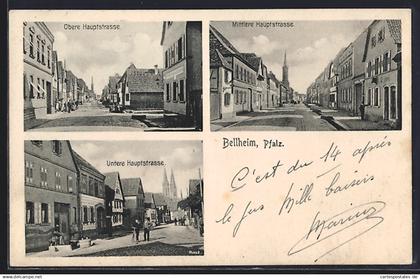 Obere Hauptstrasse.
Mittlere Hauptstrasse.
Untere Hauptstrasse.
Bellheim, Pfalz.
C'est du 14 après
le jus Mille baisers